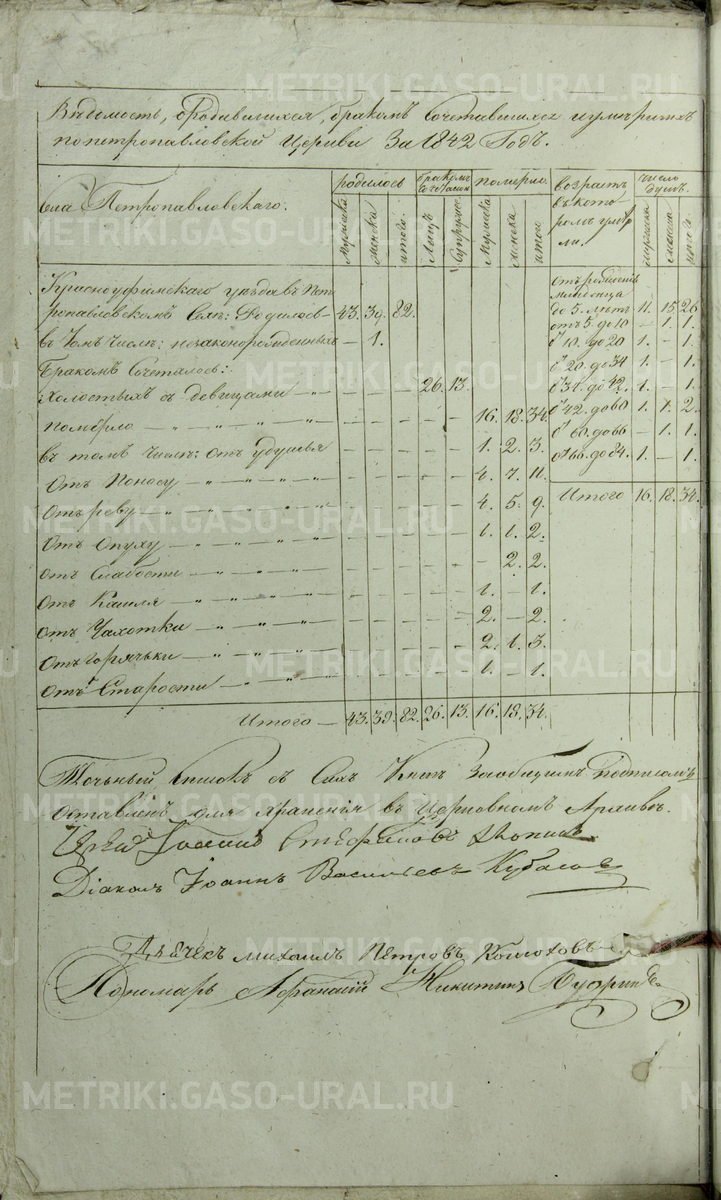 Вѣдомость, о родившихся, бракомъ сочетавшихся и умѣршихъ
по петропавловской Церкви За 1842 Годъ.
села Петропавловскаго. родилось бракомъ сочетались померло возрастъ въ которомъ умѣрли. число душъ.
мужеска женска итого. Лицъ Супруж. Мужеска женска итого мужеска женска итого
Красноуфимскаго уѣзда въ Пет
ропавловскомъ Селѣ: Родилось 43. 39. 82.
въ томъ числѣ: незаконорожденныхъ — 1.
Бракомъ Сочеталось:
Холостыхъ съ девицами — „ — 26. 13.
померло — „ „ „ „ 16. 18. 34.
въ томъ числѣ: отъ удушья 1. 2. 3.
отъ Поносу — „ — „ — „ 4. 7. 11.
отъ реву — „ — „ — „ 4. 5. 9.
отъ Опуху — „ — „ — „ 1. 1. 2.
отъ Слабости — „ — „ — „ — 2. 2.
отъ Кашля — „ — „ — „ 1. — 1.
отъ Чахотки — „ — „ — „ 2. — 2.
отъ горячьки — „ — „ — „ 2. 1. 3.
отъ Старости — „ — „ 1. — 1.
Итого — 43. 39. 82. 26. 13. 16. 18. 34.
отъ рожденія
младенца
до 5. лѣтъ 11. 15. 26
отъ 5. до 10 — 1. — 1.
10. до 20 1. — 1.
20. до 34 1. — 1.
34. до 42. 1. — 1.
42. до 60 1. 1. 2.
60. до 66 — 1. 1.
66. до 84. 1. — 1.
Итого 16. 18. 34.
Точьный списокъ съ Сихъ Книгъ За общимъ Подписомъ
оставленъ для храненія въ Церковномъ Архивѣ.
Іоаннъ Стефановъ
Діаконъ Іоаннъ Васильевъ Кубасовъ
Дьячекъ Михаилъ Петровъ
Пономарь Афанасій Никитинъ
METRIKI.GASO-URAL.RU